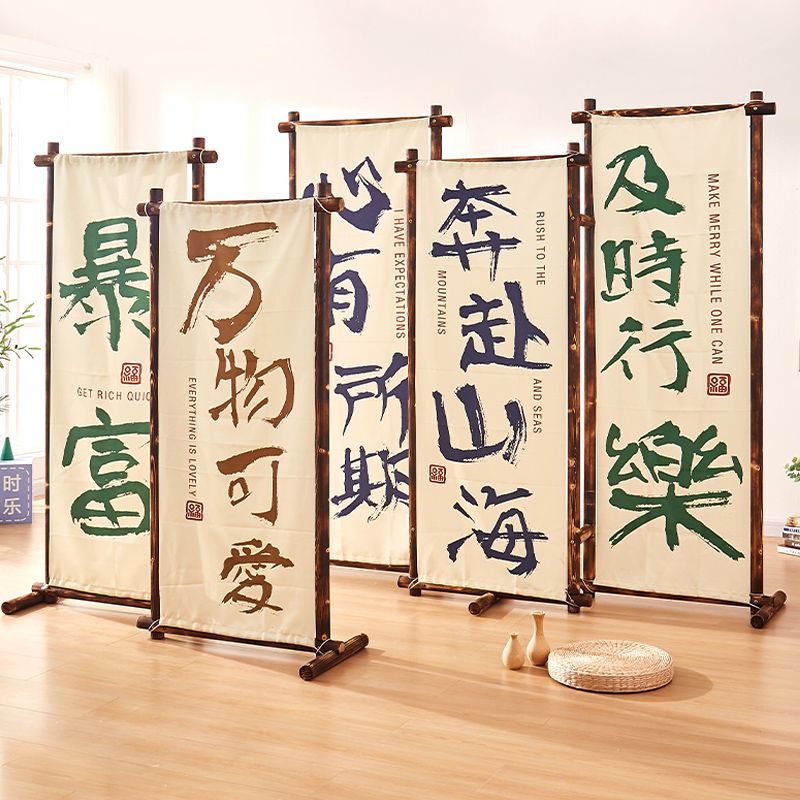 暴富
GET RICH QUIC
福
万物可愛
EVERYTHING IS LOVELY
福
心有所期
I HAVE EXPECTATIONS
奔赴山海
RUSH TO THE
MOUNTAINS
AND SEAS
福
及時行樂
MAKE MERRY WHILE ONE CAN
福
时
乐